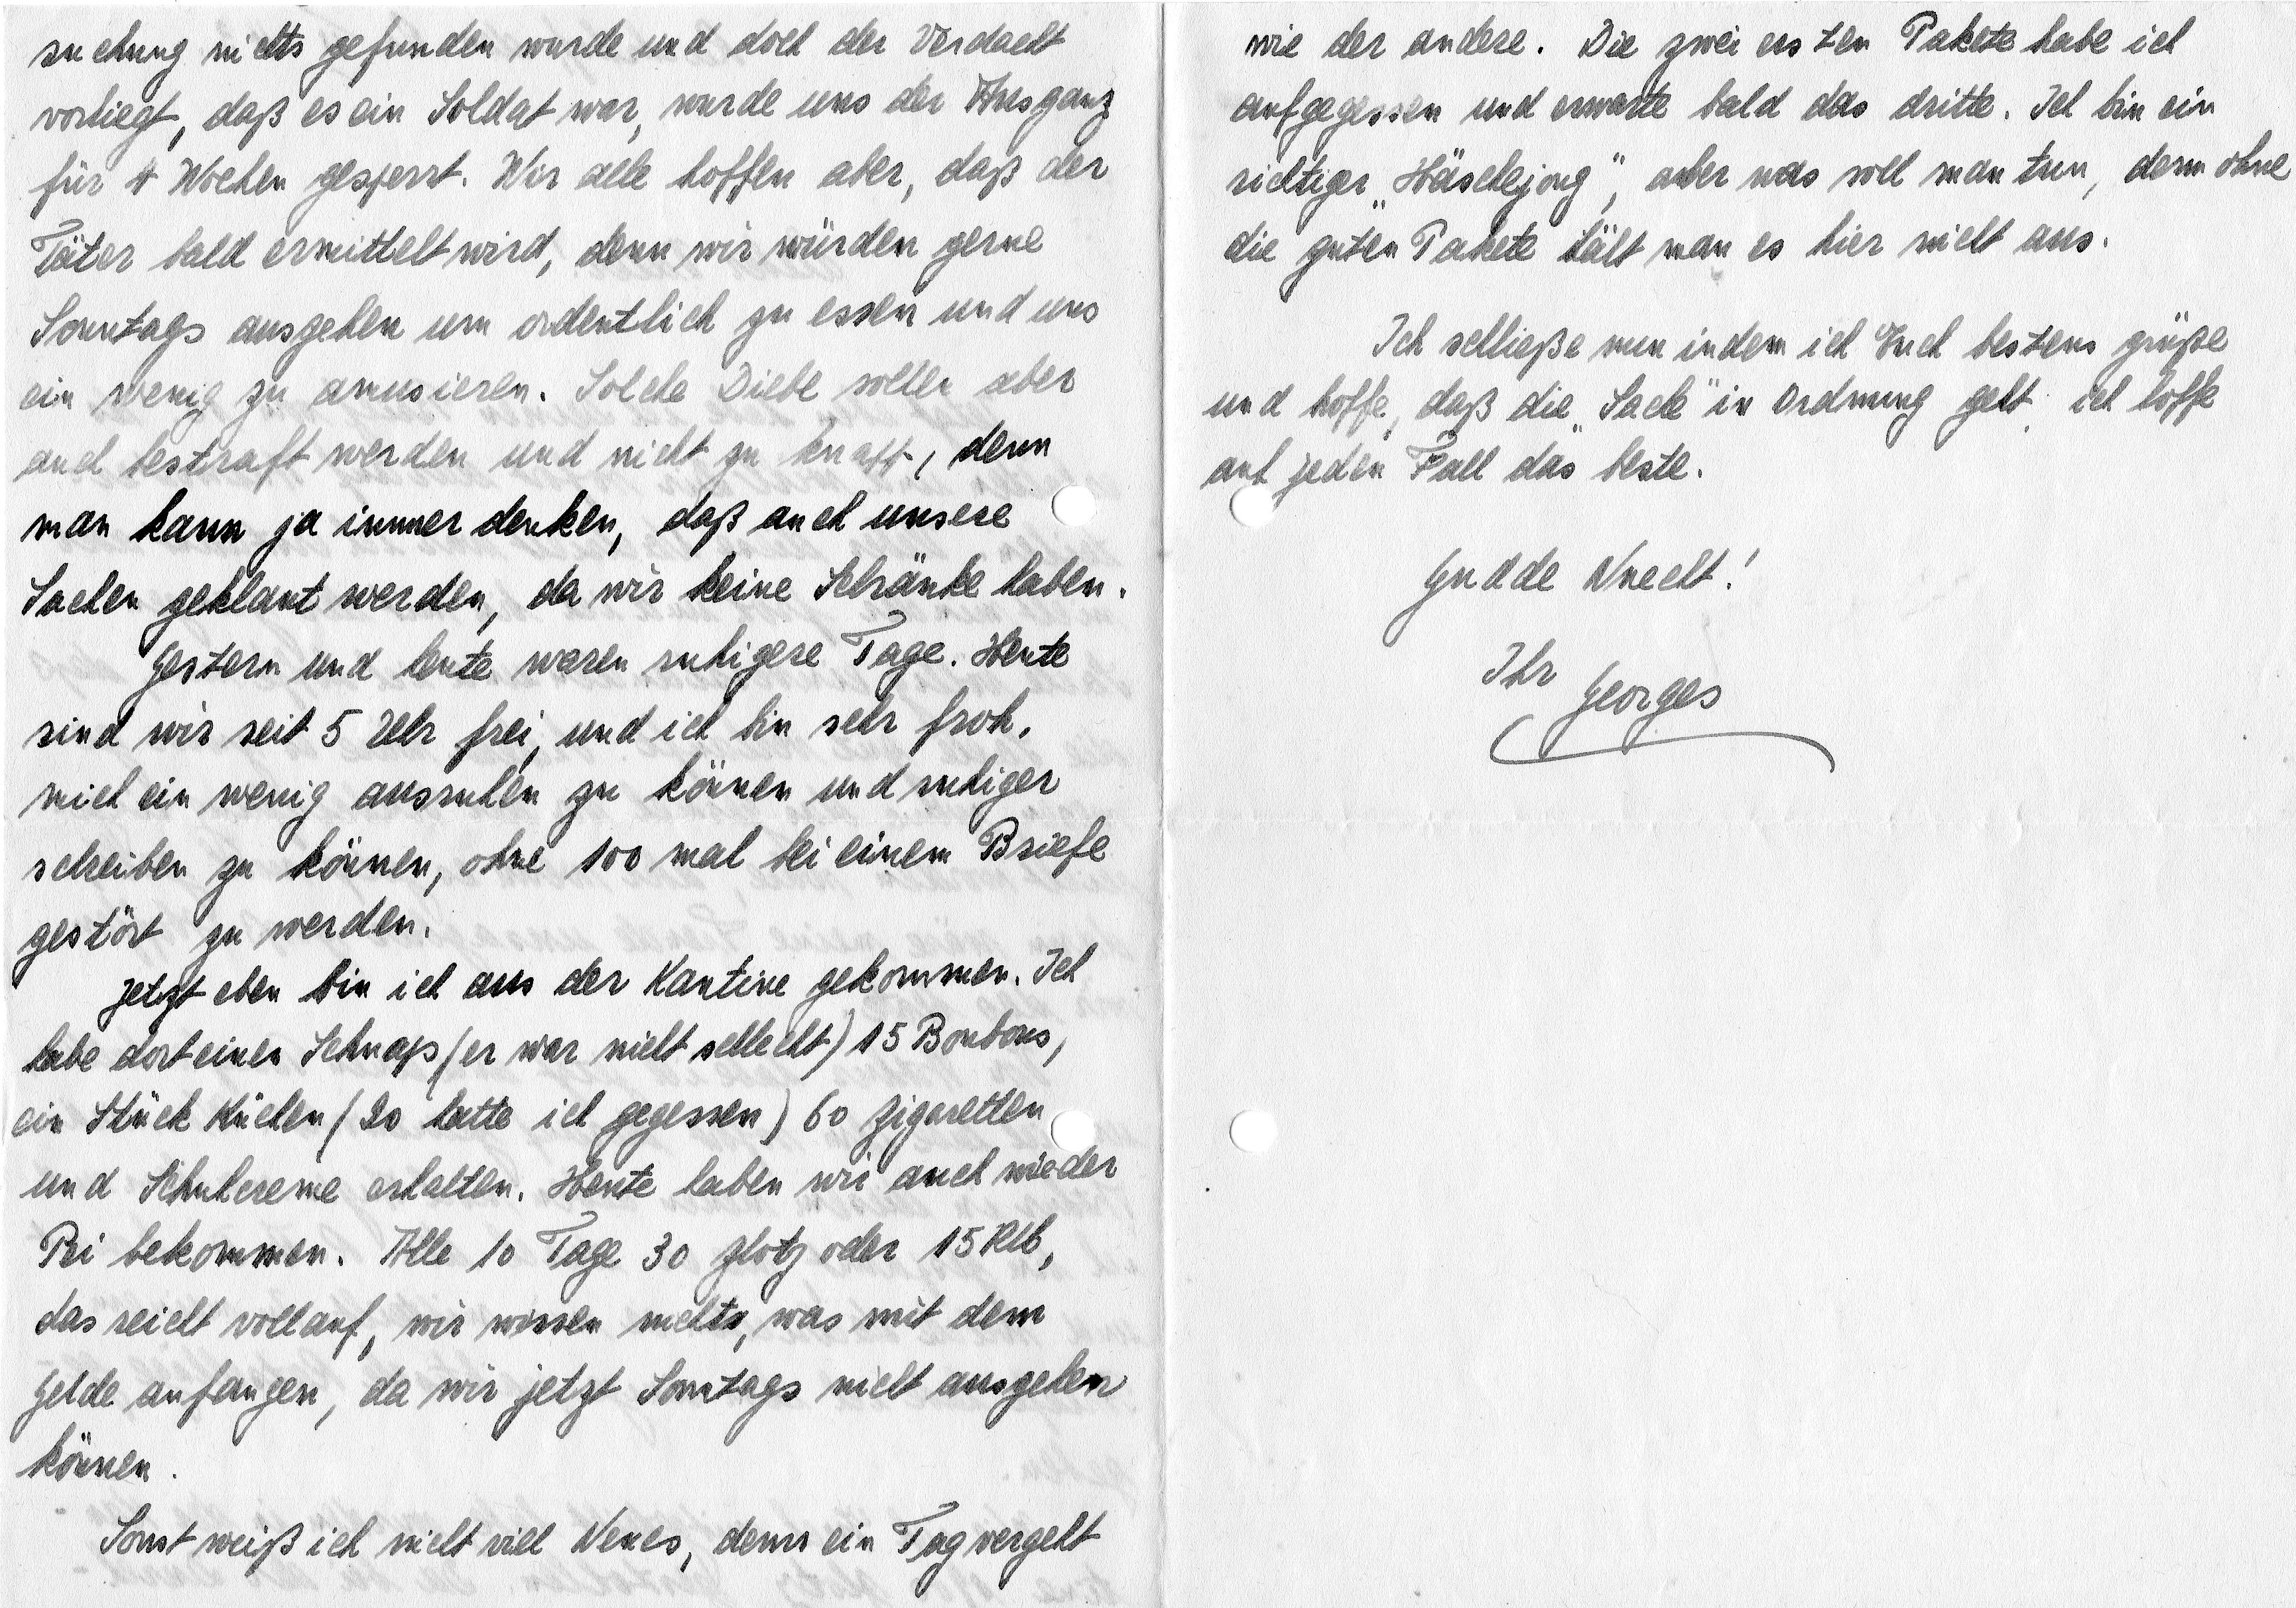 suchung nichts gefunden wurde und doch der Verdacht
vorliegt, daß es ein Soldat war, wurde uns der Ausgang
für 4 Wochen gesperrt. Wir alle hoffen aber, daß der
Täter bald ermittelt wird, denn wir würden gerne
Sonntags ausgehen um ordentlich zu essen und uns
ein wenig zu amusieren. Solche Diebe sollen aber
auch bestraft werden und nicht zu knapp, denn
man kann ja immer denken, daß auch unsere
Sachen geklaut werden, da wir keine Schränke haben.
Gestern und heute waren ruhigere Tage. Heute
sind wir seit 5 Uhr frei, und ich bin sehr froh,
mich ein wenig ausruhen zu können und ruhiger
schreiben zu können, ohne 100 mal bei einem Briefe
gestört zu werden.
Jetzt eben bin ich aus der Kantine gekommen. Ich
habe dort einen Schnaps (er war nicht schlecht) 15 Bonbons,
ein Stück Kuchen (20 hatte ich gegessen) 60 Zigaretten
und Schuhcreme erhalten. Heute haben wir auch wieder
Pri bekommen. Alle 10 Tage 30 Zloty oder 15 RM,
das reicht vollauf, wir wissen nichts, was mit dem
Gelde anfangen, da wir jetzt Sonntags nicht ausgehen
können.
Sonst weiß ich nicht viel Neues, denn ein Tag vergeht
wie der andere. Die zwei ersten Pakete habe ich
aufgegessen und erwarte bald das dritte. Ich bin ein
richtiger „Häschejong", aber was soll man tun, denn ohne
die guten Pakete hält man es hier nicht aus.
Ich schließe nun indem ich Euch bestens grüße
und hoffe, daß die „Sache" in Ordnung geht, ich hoffe
auf jeden Fall das beste.
Gudde Nuecht!
Ihr Georges